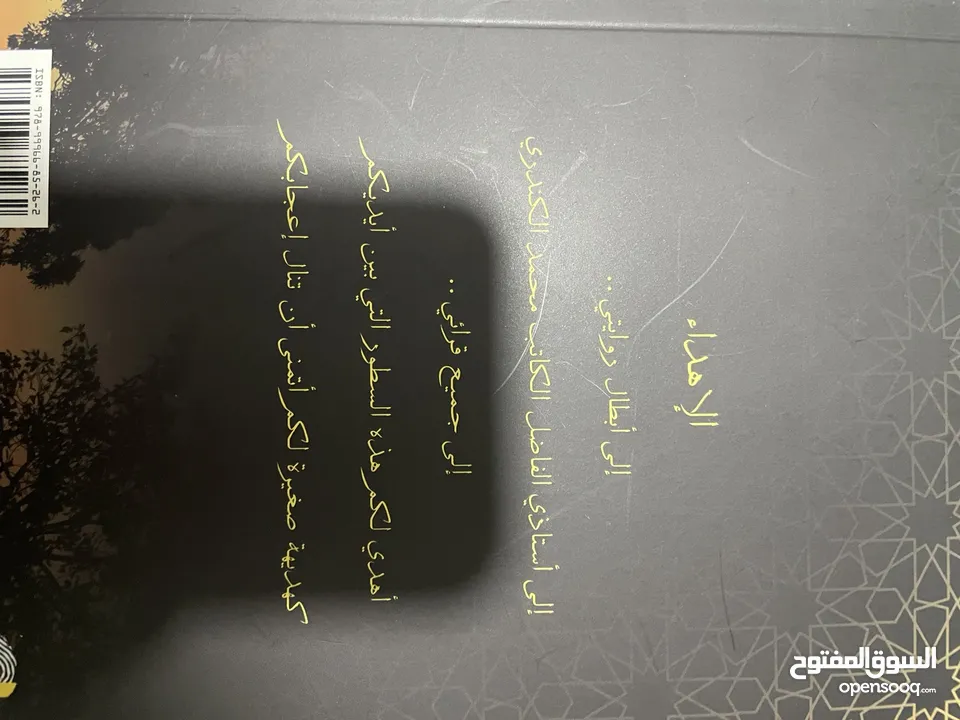 الإهداء
إلى أبطال روايتي..
إلى أستاذي الفاضل الكاتب محمد الكندري
إلى جميع قرائي..
أهدي لكم هذه السطور التي بين أيديكم
كهديهة صغيرة لكم أتمنى أن تنال إعجابكم
ISBN: 978-99966-85-26-2
السوق المفتوح
opensooq.com